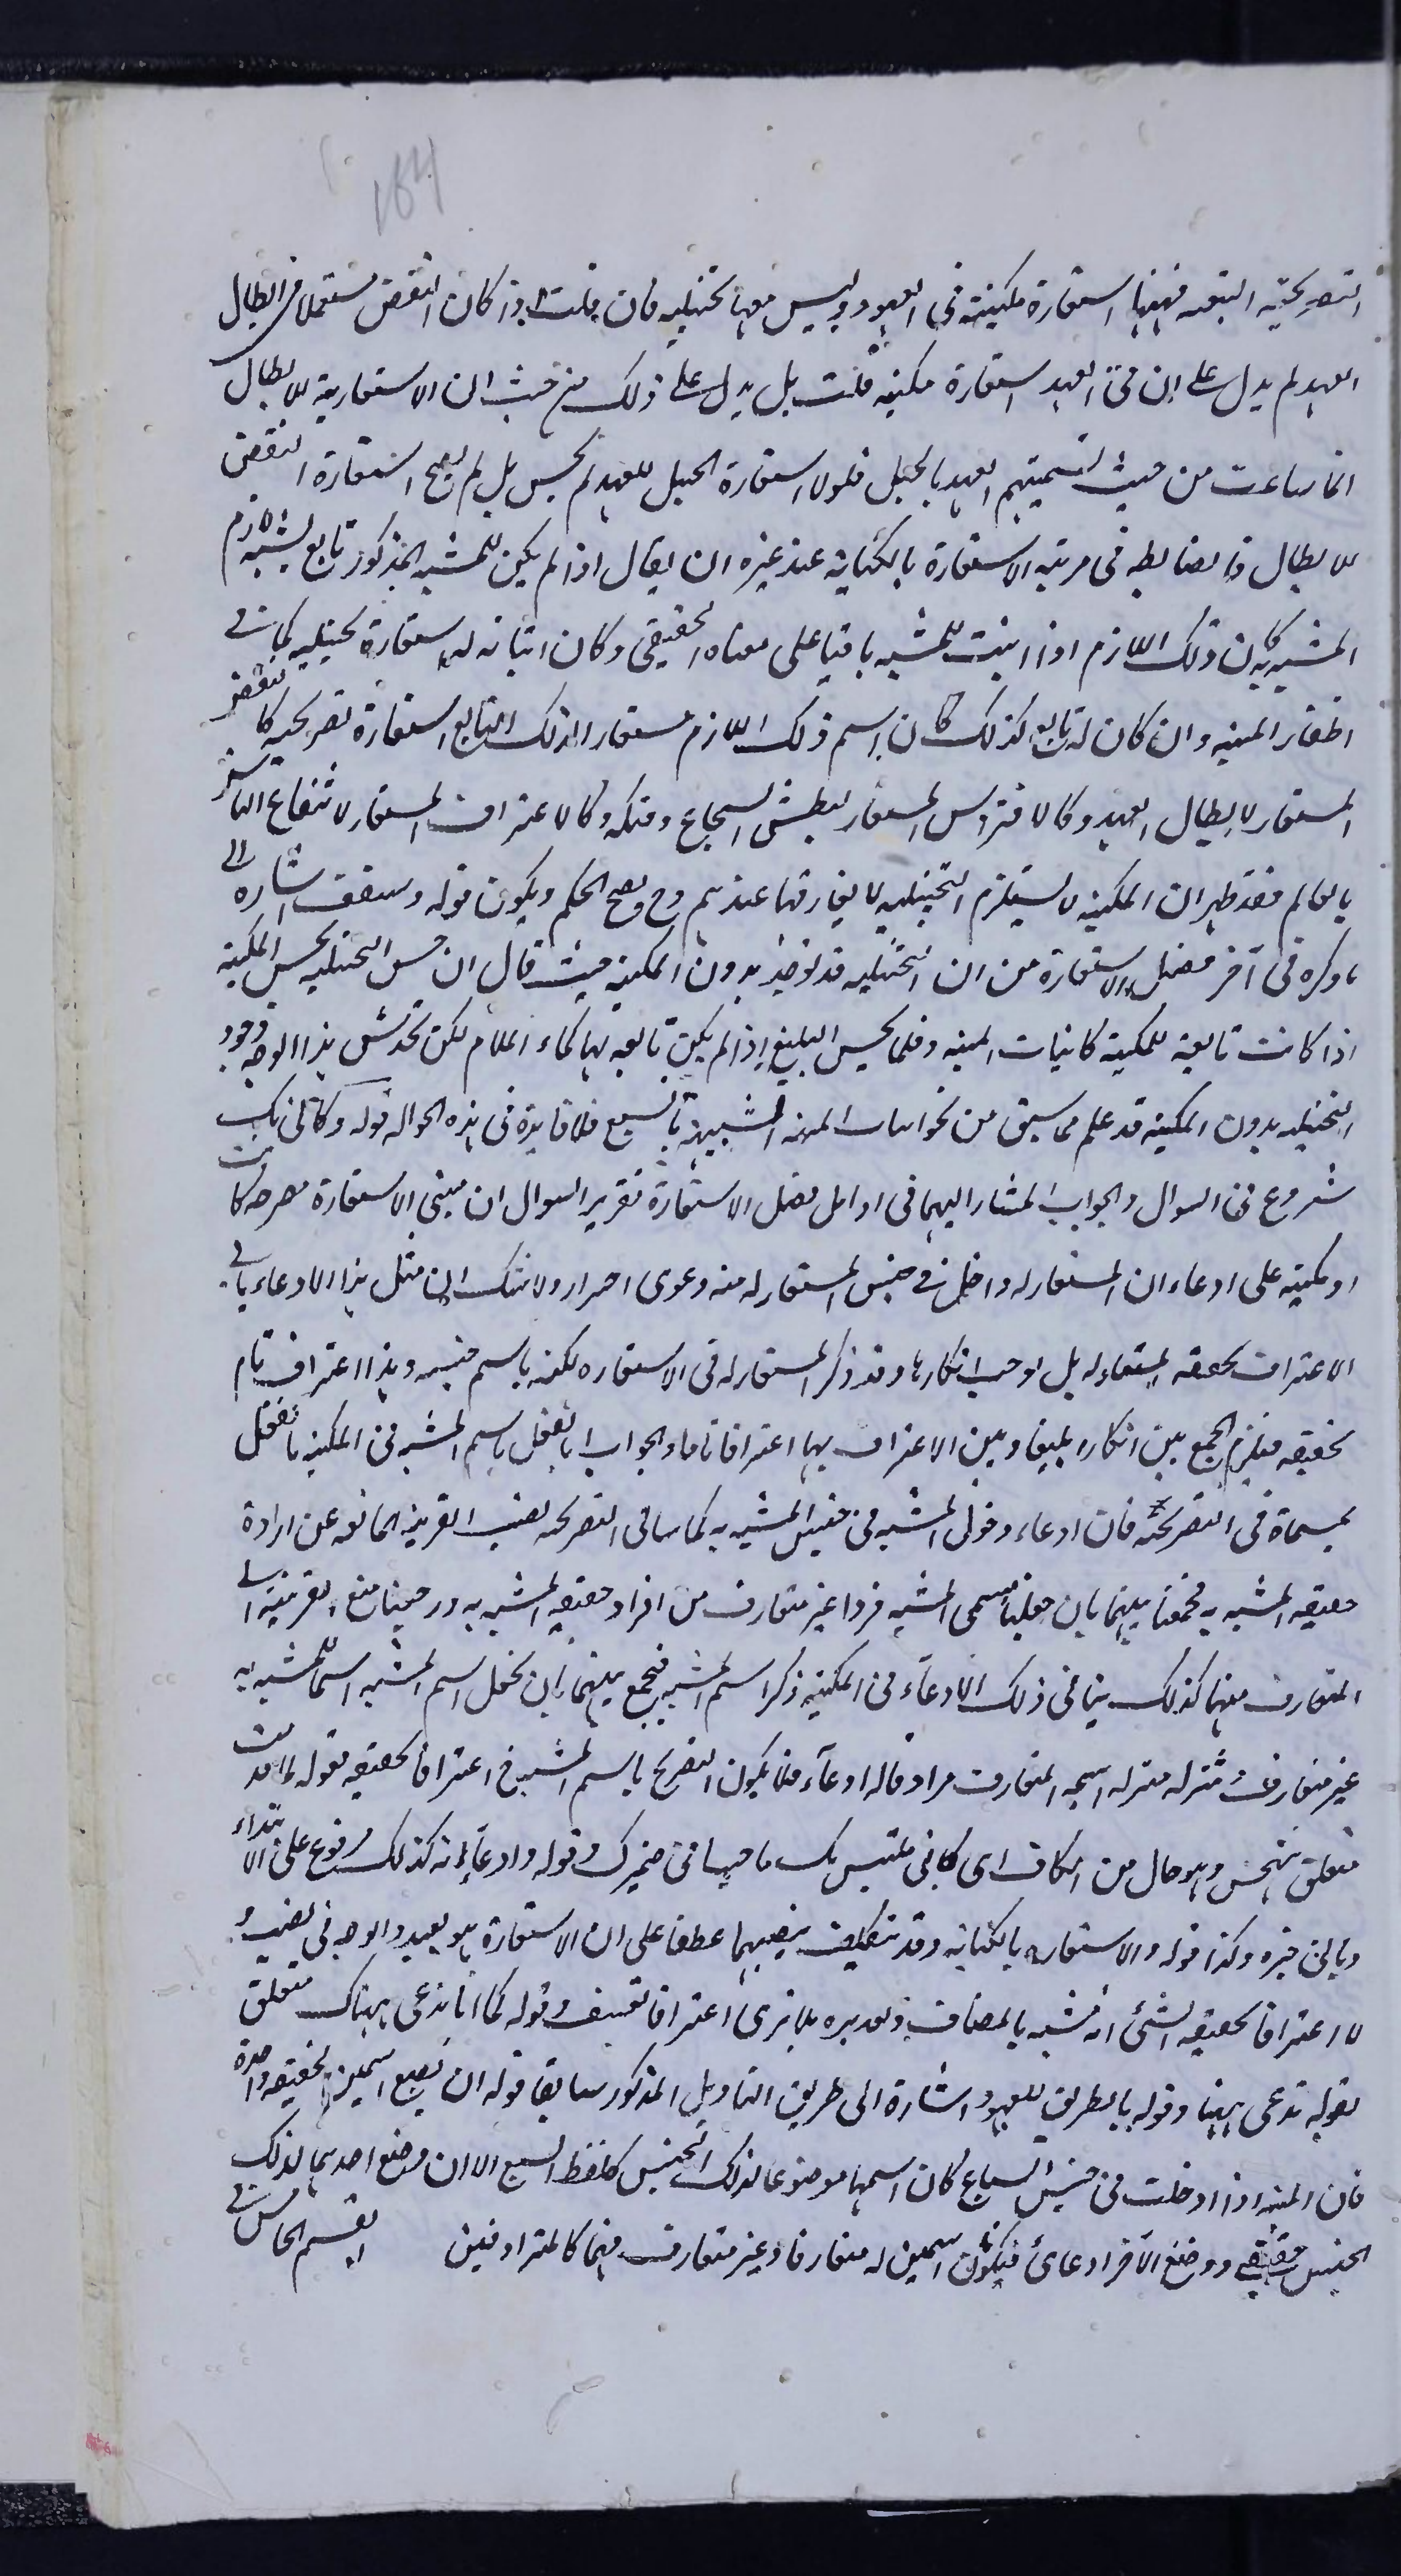 164
التصريحية التبعية فههنا استعارة مكنية في العهد وليس معها تخييلية فان قلت اذا كان النقض مستعملا في ابطال
العهد لم يدل على ان في العهد استعارة مكنية قلت بل يدل على ذلك من حيث ان الاستعارية للابطال
انما ساغت من حيث تسميتهم العهد بالحبل فلولا استعارة الحبل للعهد لم يحسن بل لم يصح استعارة النقض
للابطال فالضابطة في قرينة الاستعارة بالكناية عند غيره ان يقال اذا لم يكن للمشبه المذكور تابع يشبه لازم
المشبه به كان ذلك اللازم اذا اثبت للمشبه باقيا على معناه الحقيقي وكان اثباته له استعارة تخييلية كما في
اظفار المنية وان كان له تابع كذلك كان اسم ذلك اللازم مستعارا لذلك التابع استعارة تصريحية كالنقض
المستعار لابطال العهد وكالافتراس المستعار لبطش الشجاع وفتكه وكالاغتراف المستعار لانتفاع الناس
بالعالم فقد ظهر ان المكنية لا يستلزم التخييلية لا يفارقها عندهم وح يصح الحكم ويكون قوله وستقف اشارة الى
ما ذكره في آخر فصل الاستعارة من ان التخييلية قد توجد بدون المكنية حيث قال ان حسن التخييلية بحسن المكنية
اذا كانت تابعة للمكنية كانياب المنية وقلما يحسن البليغ اذا لم يكن تابعة لها كماء الملام لكن يخدش هذا الوجه وجود
التخييلية بدون المكنية قد علم مما سبق من نحو انياب المنية الشبيهة بالسبع فلا فايدة في هذه الحوالة قوله وكاني بك
شروع في السوال والجواب المشار اليهما في اوايل فصل الاستعارة تقرير السوال ان مبنى الاستعارة مصرحة كانت
او مكنية على ادعاء ان المستعار له داخل في جنس المستعار منه دعوى اصرار ولا شك ان مثل هذا الادعاء يابى
الاعتراف بحقيقة المستعار له بل يوجب انكارها وقد ذكر المستعار له في الاستعارة لكنه باسم جنسه وهذا اعتراف تام
بحقيقته فيلزم الجمع بين انكار بليغا وبين الاعتراف بها اعترافا تاما والجواب انا نفعل باسم المشبه في المكنية ما نفعل
بمسماه في التصريحية فان ادعاء دخول المشبه في جنس المشبه به كما ينافي التصريحية نصب القرينة المانعة عن ارادة
حقيقة المشبه به فجمعنا بينهما بان جعلنا مسمى المشبه فردا غير متعارف من افراد حقيقة المشبه به ورجعنا منع القرينة الى
المتعارف منهما كذلك ينافي ذلك الادعاء في المكنية ذكر اسم المشبه فنجمع بينهما بان نجعل اسم المشبه اسما للمشبه به
غير متعارف وننزله منزلة اسمه المتعارف مرادفا له ادعاء فلا يكون التصريح باسم المشبه ح اعترافا بحقيقته قوله لما قدمت
متعلق وهو حال من الكاف اى كاني ملتبس بك ما حييا في ضميرك وقوله وادعاء انه كذلك مرفوع على الابتداء
وبالى خبره وكذا قوله والاستعارة بالكناية وقد يتكلف بنصبهما عطفا على ان الاستعارة هو بعيد والوجه في نصب و
لا اعترافا بحقيقة الشئ انه مشبه بالمضاف وتقديره بلا ترى اعترافا تعسف وقوله كما انا ندعى هناك متعلق
بقوله ندعى ههنا وقوله بالطريق المعهود اشارة الى طريق التاويل المذكور سابقا قوله ان يضع اسمين لحقيقة واحدة
فان المنية اذا ادخلت في جنس السباع كان اسمها موضوعا لذلك الجنس كلفظ السبع الا ان وضع احدهما لذلك
الجنس حقيقي ووضع الآخر ادعائى فيكون اسمين له متعارفا وغير متعارف فهما كالمترادفين القسم الخامس في